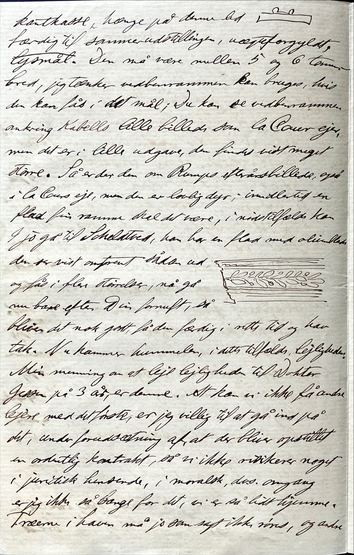 kantkasse, hænge på denne led
færdig til sommerudstillingen, ægteforgyldt,
lysmål. Den må være mellem 5 og 6 tommer
bred, jeg tænker nedbrammen kan bruges, hvis
den kan fås i det mål; Du kan se
omkring Alle billede som la Cour ejer,
men det er i lille udgave, den findes vist meget
større. Så er der den om Rumps efterårsbillede, også
i la Cours eje, men du er lovlig dyr; imidlertid en
flad fin ramme skal det være, i nødstilfælde kan
jo gå til Schelsted, han har en flad med olieblade
der ser vist omtrent sådan ud
og fås i flere størrelser, nå gå
nu bare efter Din fornuft, så
bliver det nok godt få den færdig i rette tid og hav
tak. Nu kommer hummelen, i dette tilfælde, lejligheden.
Min mening om at leje lejligheden til Doktor
på 3 år, er denne. At kan vi ikke få andre
lejere med det første, er jeg villig til at gå ind på
det, under forudsætning af, at der bliver oprettet
en ordentlig kontrakt, så vi ikke risikerer noget
i juridisk henseende, i moralsk, d.v.s. omgang
er jeg ikke så bange for det, vi er så lidt hjemme.
Træerne i haven må jo som sagt ikke røres, og andre